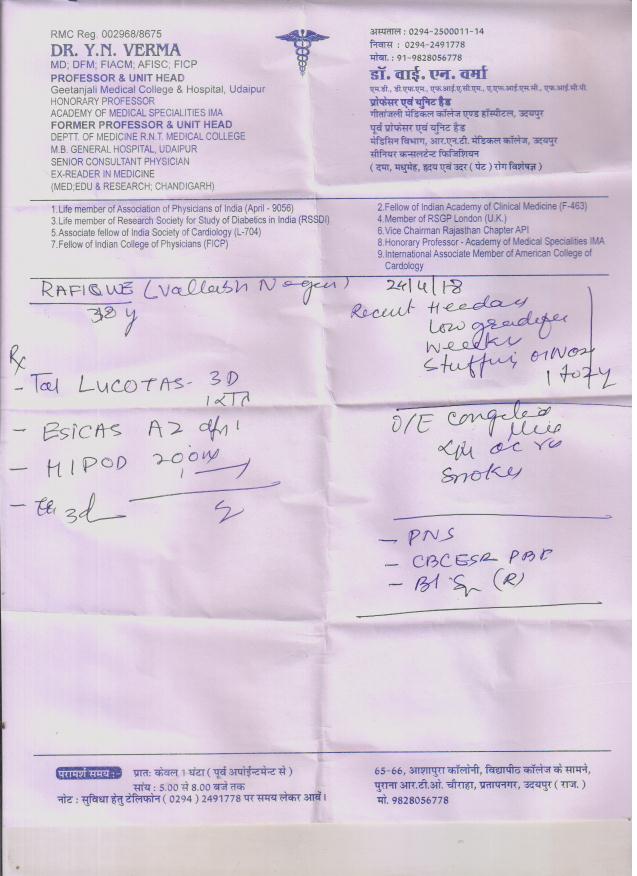 RMC Reg. 002968/8675
DR. Y.N. VERMA
MD; DFM; FIACM; AFISC; FICP
PROFESSOR & UNIT HEAD
Geetanjali Medical College & Hospital, Udaipur
HONORARY PROFESSOR
ACADEMY OF MEDICAL SPECIALITIES IMA
FORMER PROFESSOR & UNIT HEAD
DEPTT. OF MEDICINE R.N.T. MEDICAL COLLEGE
M.B. GENERAL HOSPITAL, UDAIPUR
SENIOR CONSULTANT PHYSICIAN
EX-READER IN MEDICINE
(MED;EDU & RESEARCH; CHANDIGARH)
अस्पताल : 0294-2500011-14
निवास : 0294-2491778
मोबा. : 91-9828056778
डॉ. वाई. एन. वर्मा
एम.डी., डी.एफ.एम., एफ.आई.ए.सी.एम., ए.एफ.आई.एस.सी., एफ.आई.सी.पी.
प्रोफेसर एवं युनिट हैड
गीतांजली मेडिकल कॉलेज एण्ड हॉस्पीटल, उदयपुर
पूर्व प्रोफेसर एवं युनिट हैड
मेडिसिन विभाग, आर.एन.टी. मेडिकल कॉलेज, उदयपुर
सीनियर कन्सलटेन्ट फिजिशियन
( दमा, मधुमेह, हृदय एवं उदर ( पेट ) रोग विशेषज्ञ )
1.Life member of Association of Physicians of India (April - 9056)
3.Life member of Research Society for Study of Diabetics in India (RSSDI)
5.Associate fellow of India Society of Cardiology (L-704)
7.Fellow of Indian College of Physicians (FICP)
2.Fellow of Indian Academy of Clinical Medicine (F-463)
4.Member of RSGP London (U.K.)
6.Vice Chairman Rajasthan Chapter API
8.Honorary Professor - Academy of Medical Specialities IMA
9.International Associate Member of American College of
Cardiology
RAFIQUE (Vallabh Nagar)
38 y
24/4/18
Recent
Low grade
Rx
- Tab LUCOTAS- 3D
- ESICAS A2
- HIPOD 200
- 3d
O/E
Smoker
- PNS
- CBC ESR PBF
- Bl (R)
परामर्श समय :-
प्रातः केवल 1 घंटा ( पूर्व अपोईन्टमेन्ट से )
सांय : 5.00 से 8.00 बजे तक
नोट : सुविधा हेतु टेलिफोन ( 0294 ) 2491778 पर समय लेकर आवें।
65-66, आशापुरा कॉलोनी, विद्यापीठ कॉलेज के सामने,
पुराना आर.टी.ओ. चौराहा, प्रतापनगर, उदयपुर ( राज. )
मो. 9828056778